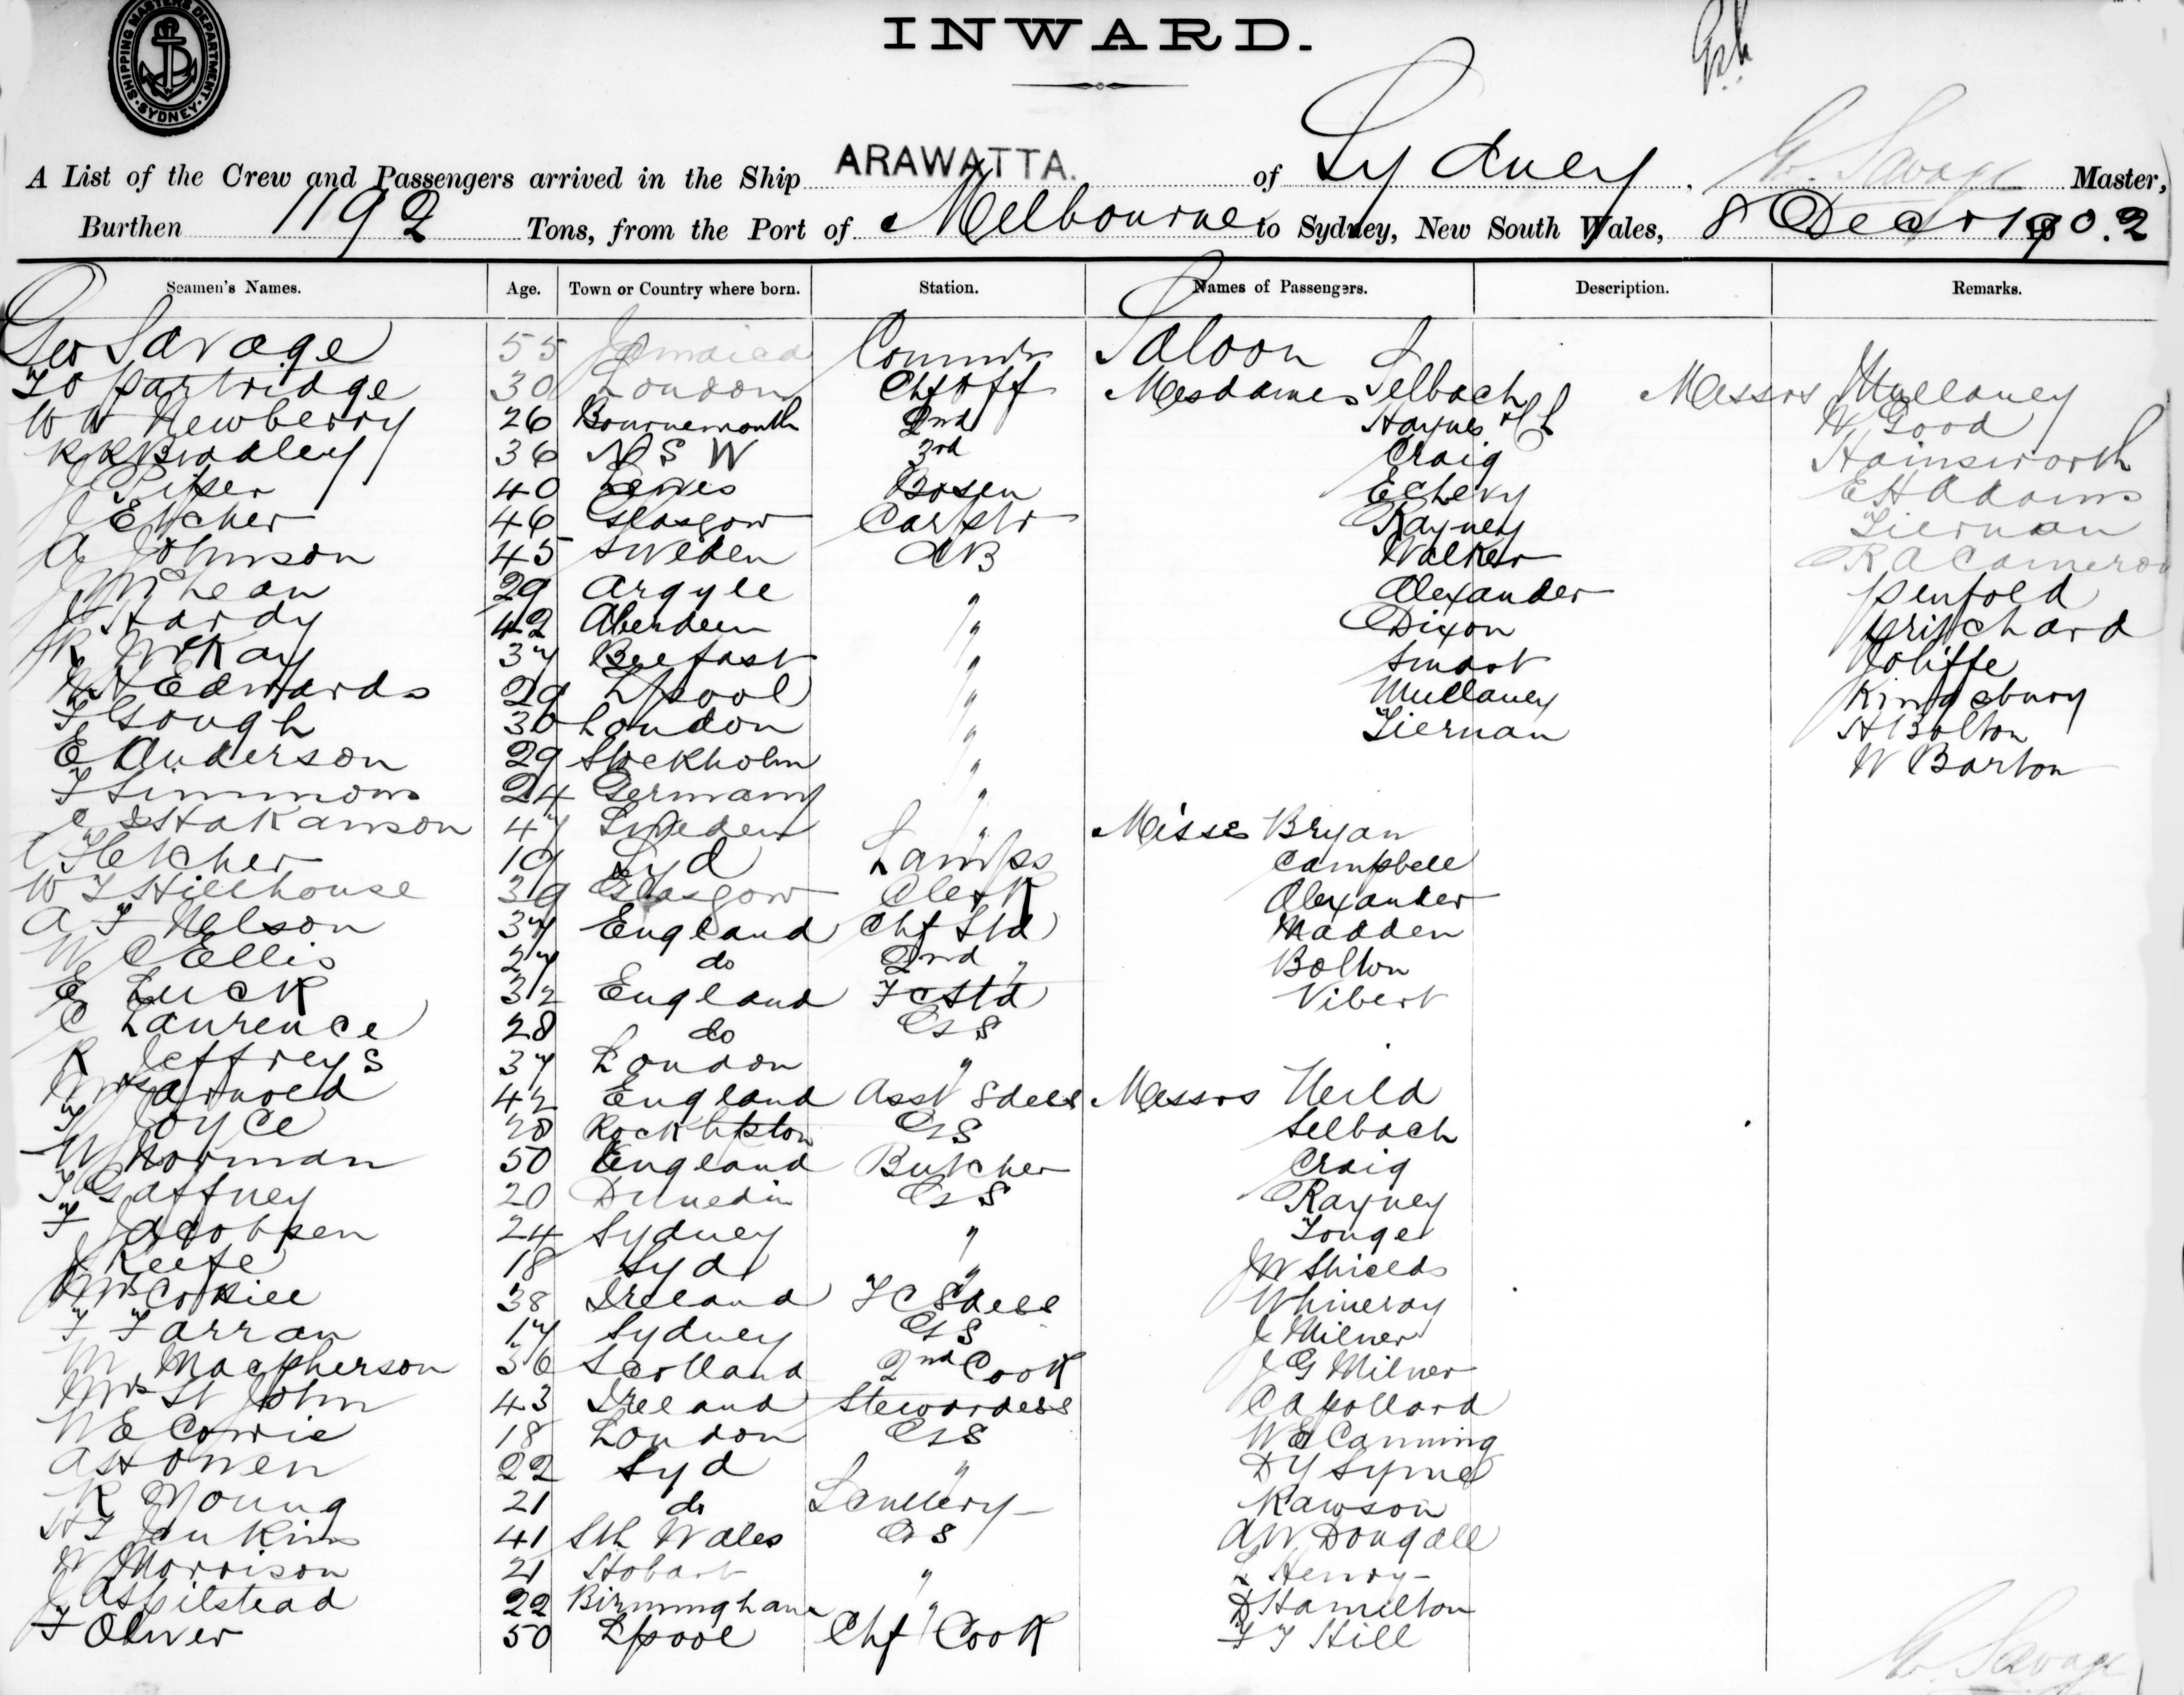 SHIPPING MASTERS DEPARTMENT. SYDNEY
INWARD.
A List of the Crew and Passengers arrived in the Ship ARAWATTA. of Sydney, G. Savage Master,
Burthen 1192 Tons, from the Port of Melbourne to Sydney, New South Wales, 8 Decr 1902
Seamen's Names. Age. Town or Country where born. Station. Names of Passengers. Description. Remarks.
Geo Savage 55 Jamaica Commdr Saloon
T O Partridge 30 London Chf Off Mesdames Selbach Messrs Mullaney
W W Newberry 26 Bournemouth 2nd Haynes W Good
R K Bradley 36 N S W 3rd Craig Hainsworth
J Piper 40 Bosen Echevy E H Adams
J Etcher 46 Glasgow Carptr Rayney Tiernan
A Johnson 45 Sweden AB Walker R A Cameron
J McLean 29 Argyle " Alexander Penfold
J Hardy 42 Aberdeen " Dixon Pritchard
R McKay 37 Belfast " Smart Joliffe
W H Edwards 29 Lpool " Mullaney Kingsbury
F Gough 30 London " Tiernan H Bolton
E Anderson 29 Stockholm " W Barton
F Simmons 24 Germany "
C Hakanson 47 Sweden " Misses Bryan
C Fletcher 19 Syd Lamps Campbell
W T Hillhouse 39 Glasgow Clerk Alexander
A T Nelson 37 England Chf Std Madden
W C Ellis 27 do 2nd " Bolton
E Luck 32 England F C Std Vibert
C Laurence 28 do G S
R Jeffreys 37 London "
Mrs Arnold 42 England Asst Sdess Messrs Neild
T Joyce 28 Rockhpton G S Selbach
W Norman 50 England Butcher Craig
T Gaffney 20 Dunedin G S Rayney
F Jacobsen 24 Sydney " Tonge
J Keefe 18 Syd " J W Shields
Mrs Corkill 38 Ireland F C Sdess Whineray
F Farran 17 Sydney G S J Milner
M Macpherson 36 Scotland 2nd Cook J G Milner
Mrs St John 43 Ireland Stewardess C A Pollard
W E Cowie 18 London G S W E Canning
A H Owen 22 Syd " D Y Syme
R Young 21 do Scullery Rawson
H T Jenkins 41 Sth Wales G S A W Dougall
W Morrison 21 Hobart " L Henry
J Aspilstead 22 Birmingham " D Hamilton
F Oliver 50 Lpool Chf Cook F T Hill
G. Savage